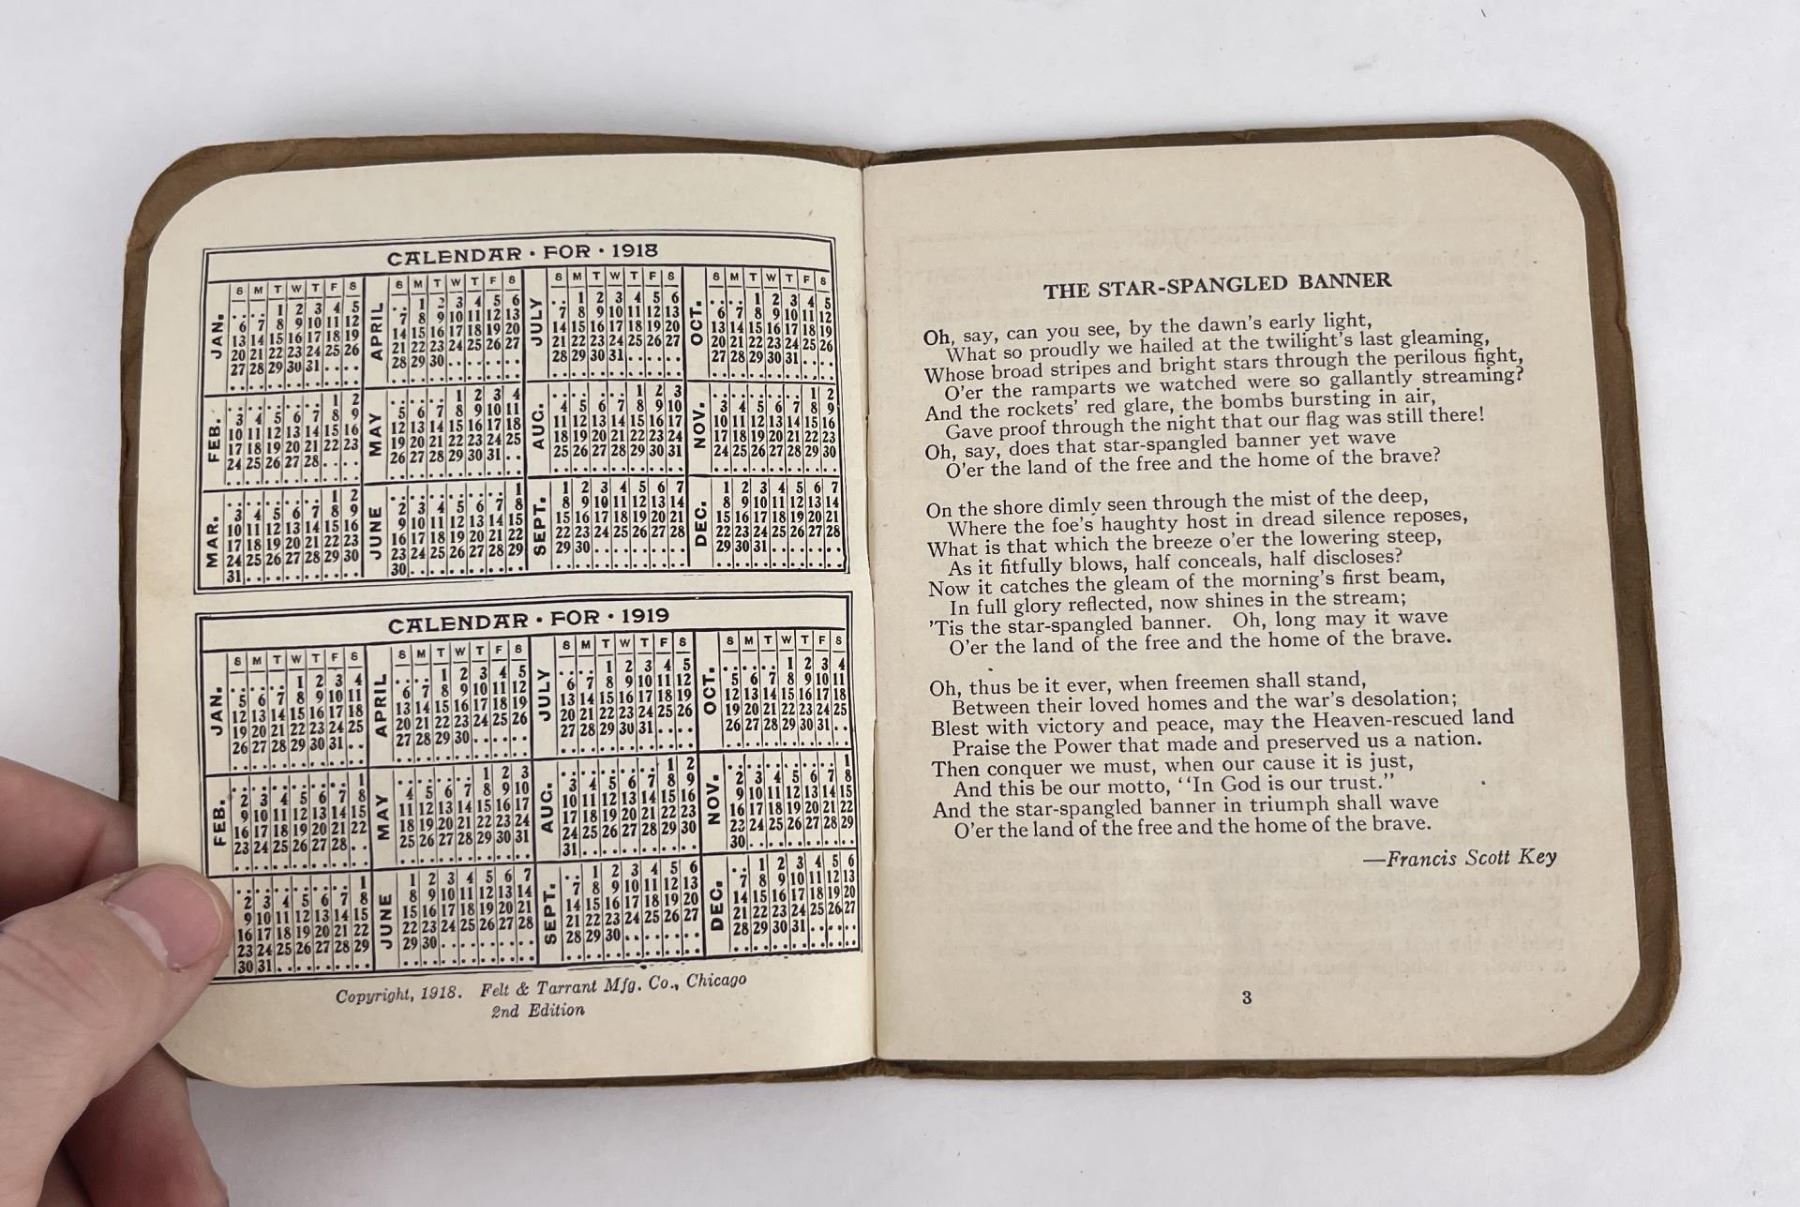 CALENDAR · FOR · 1918
JAN.
S M T W T F S
1 2 3 4 5
6 7 8 9 10 11 12
13 14 15 16 17 18 19
20 21 22 23 24 25 26
27 28 29 30 31
APRIL
S M T W T F S
1 2 3 4 5 6
7 8 9 10 11 12 13
14 15 16 17 18 19 20
21 22 23 24 25 26 27
28 29 30
JULY
S M T W T F S
1 2 3 4 5 6
7 8 9 10 11 12 13
14 15 16 17 18 19 20
21 22 23 24 25 26 27
28 29 30 31
OCT.
S M T W T F S
1 2 3 4 5
6 7 8 9 10 11 12
13 14 15 16 17 18 19
20 21 22 23 24 25 26
27 28 29 30 31
FEB.
1 2
3 4 5 6 7 8 9
10 11 12 13 14 15 16
17 18 19 20 21 22 23
24 25 26 27 28
MAY
1 2 3 4
5 6 7 8 9 10 11
12 13 14 15 16 17 18
19 20 21 22 23 24 25
26 27 28 29 30 31
AUG.
1 2 3
4 5 6 7 8 9 10
11 12 13 14 15 16 17
18 19 20 21 22 23 24
25 26 27 28 29 30 31
NOV.
1 2
3 4 5 6 7 8 9
10 11 12 13 14 15 16
17 18 19 20 21 22 23
24 25 26 27 28 29 30
MAR.
1 2
3 4 5 6 7 8 9
10 11 12 13 14 15 16
17 18 19 20 21 22 23
24 25 26 27 28 29 30
31
JUNE
1
2 3 4 5 6 7 8
9 10 11 12 13 14 15
16 17 18 19 20 21 22
23 24 25 26 27 28 29
30
SEPT.
1 2 3 4 5 6 7
8 9 10 11 12 13 14
15 16 17 18 19 20 21
22 23 24 25 26 27 28
29 30
DEC.
1 2 3 4 5 6 7
8 9 10 11 12 13 14
15 16 17 18 19 20 21
22 23 24 25 26 27 28
29 30 31
CALENDAR · FOR · 1919
JAN.
S M T W T F S
1 2 3 4
5 6 7 8 9 10 11
12 13 14 15 16 17 18
19 20 21 22 23 24 25
26 27 28 29 30 31
APRIL
S M T W T F S
1 2 3 4 5
6 7 8 9 10 11 12
13 14 15 16 17 18 19
20 21 22 23 24 25 26
27 28 29 30
JULY
S M T W T F S
1 2 3 4 5
6 7 8 9 10 11 12
13 14 15 16 17 18 19
20 21 22 23 24 25 26
27 28 29 30 31
OCT.
S M T W T F S
1 2 3 4
5 6 7 8 9 10 11
12 13 14 15 16 17 18
19 20 21 22 23 24 25
26 27 28 29 30 31
FEB.
1
2 3 4 5 6 7 8
9 10 11 12 13 14 15
16 17 18 19 20 21 22
23 24 25 26 27 28
MAY
1 2 3
4 5 6 7 8 9 10
11 12 13 14 15 16 17
18 19 20 21 22 23 24
25 26 27 28 29 30 31
AUG.
1 2
3 4 5 6 7 8 9
10 11 12 13 14 15 16
17 18 19 20 21 22 23
24 25 26 27 28 29 30
31
NOV.
1
2 3 4 5 6 7 8
9 10 11 12 13 14 15
16 17 18 19 20 21 22
23 24 25 26 27 28 29
30
1
2 3 4 5 6 7 8
9 10 11 12 13 14 15
16 17 18 19 20 21 22
23 24 25 26 27 28 29
30 31
JUNE
1 2 3 4 5 6 7
8 9 10 11 12 13 14
15 16 17 18 19 20 21
22 23 24 25 26 27 28
29 30
SEPT.
1 2 3 4 5 6
7 8 9 10 11 12 13
14 15 16 17 18 19 20
21 22 23 24 25 26 27
28 29 30
DEC.
1 2 3 4 5 6
7 8 9 10 11 12 13
14 15 16 17 18 19 20
21 22 23 24 25 26 27
28 29 30 31
Copyright, 1918. Felt & Tarrant Mfg. Co., Chicago
2nd Edition
THE STAR-SPANGLED BANNER
Oh, say, can you see, by the dawn's early light,
What so proudly we hailed at the twilight's last gleaming,
Whose broad stripes and bright stars through the perilous fight,
O'er the ramparts we watched were so gallantly streaming?
And the rockets' red glare, the bombs bursting in air,
Gave proof through the night that our flag was still there!
Oh, say, does that star-spangled banner yet wave
O'er the land of the free and the home of the brave?
On the shore dimly seen through the mist of the deep,
Where the foe's haughty host in dread silence reposes,
What is that which the breeze o'er the lowering steep,
As it fitfully blows, half conceals, half discloses?
Now it catches the gleam of the morning's first beam,
In full glory reflected, now shines in the stream;
'Tis the star-spangled banner. Oh, long may it wave
O'er the land of the free and the home of the brave.
Oh, thus be it ever, when freemen shall stand,
Between their loved homes and the war's desolation;
Blest with victory and peace, may the Heaven-rescued land
Praise the Power that made and preserved us a nation.
Then conquer we must, when our cause it is just,
And this be our motto, "In God is our trust."
And the star-spangled banner in triumph shall wave
O'er the land of the free and the home of the brave.
—Francis Scott Key
3